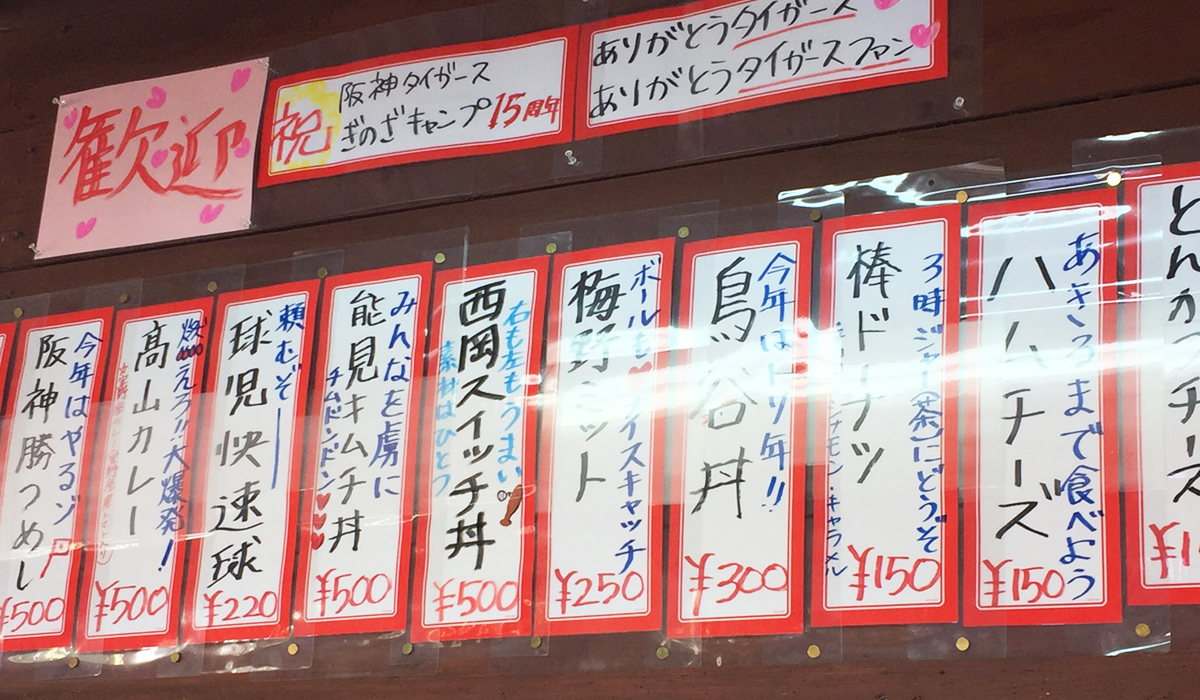 歓迎
祝
阪神タイガース
ぎのざキャンプ15周年
ありがとうタイガース
ありがとうタイガースファン
とんかつチーズ
¥1
あきるまで食べよう
ハムチーズ
¥150
3時ジャー(茶)にどうぞ
棒ドーナツ
シナモン・キャラメル
¥150
今年はトリ年!!
鳥谷丼
¥300
ボールも♥ナイスキャッチ
梅野ミット
¥250
右も左もうまい
素材はひとつ
西岡スイッチ丼
¥500
みんなを虜に
チムドンドン♥♥♥
能見キムチ丼
¥500
頼むぞー
球児快速球
¥220
燃えろ!!大爆発!
髙山カレー
¥500
今年はやるゾ
阪神勝つめし
¥500